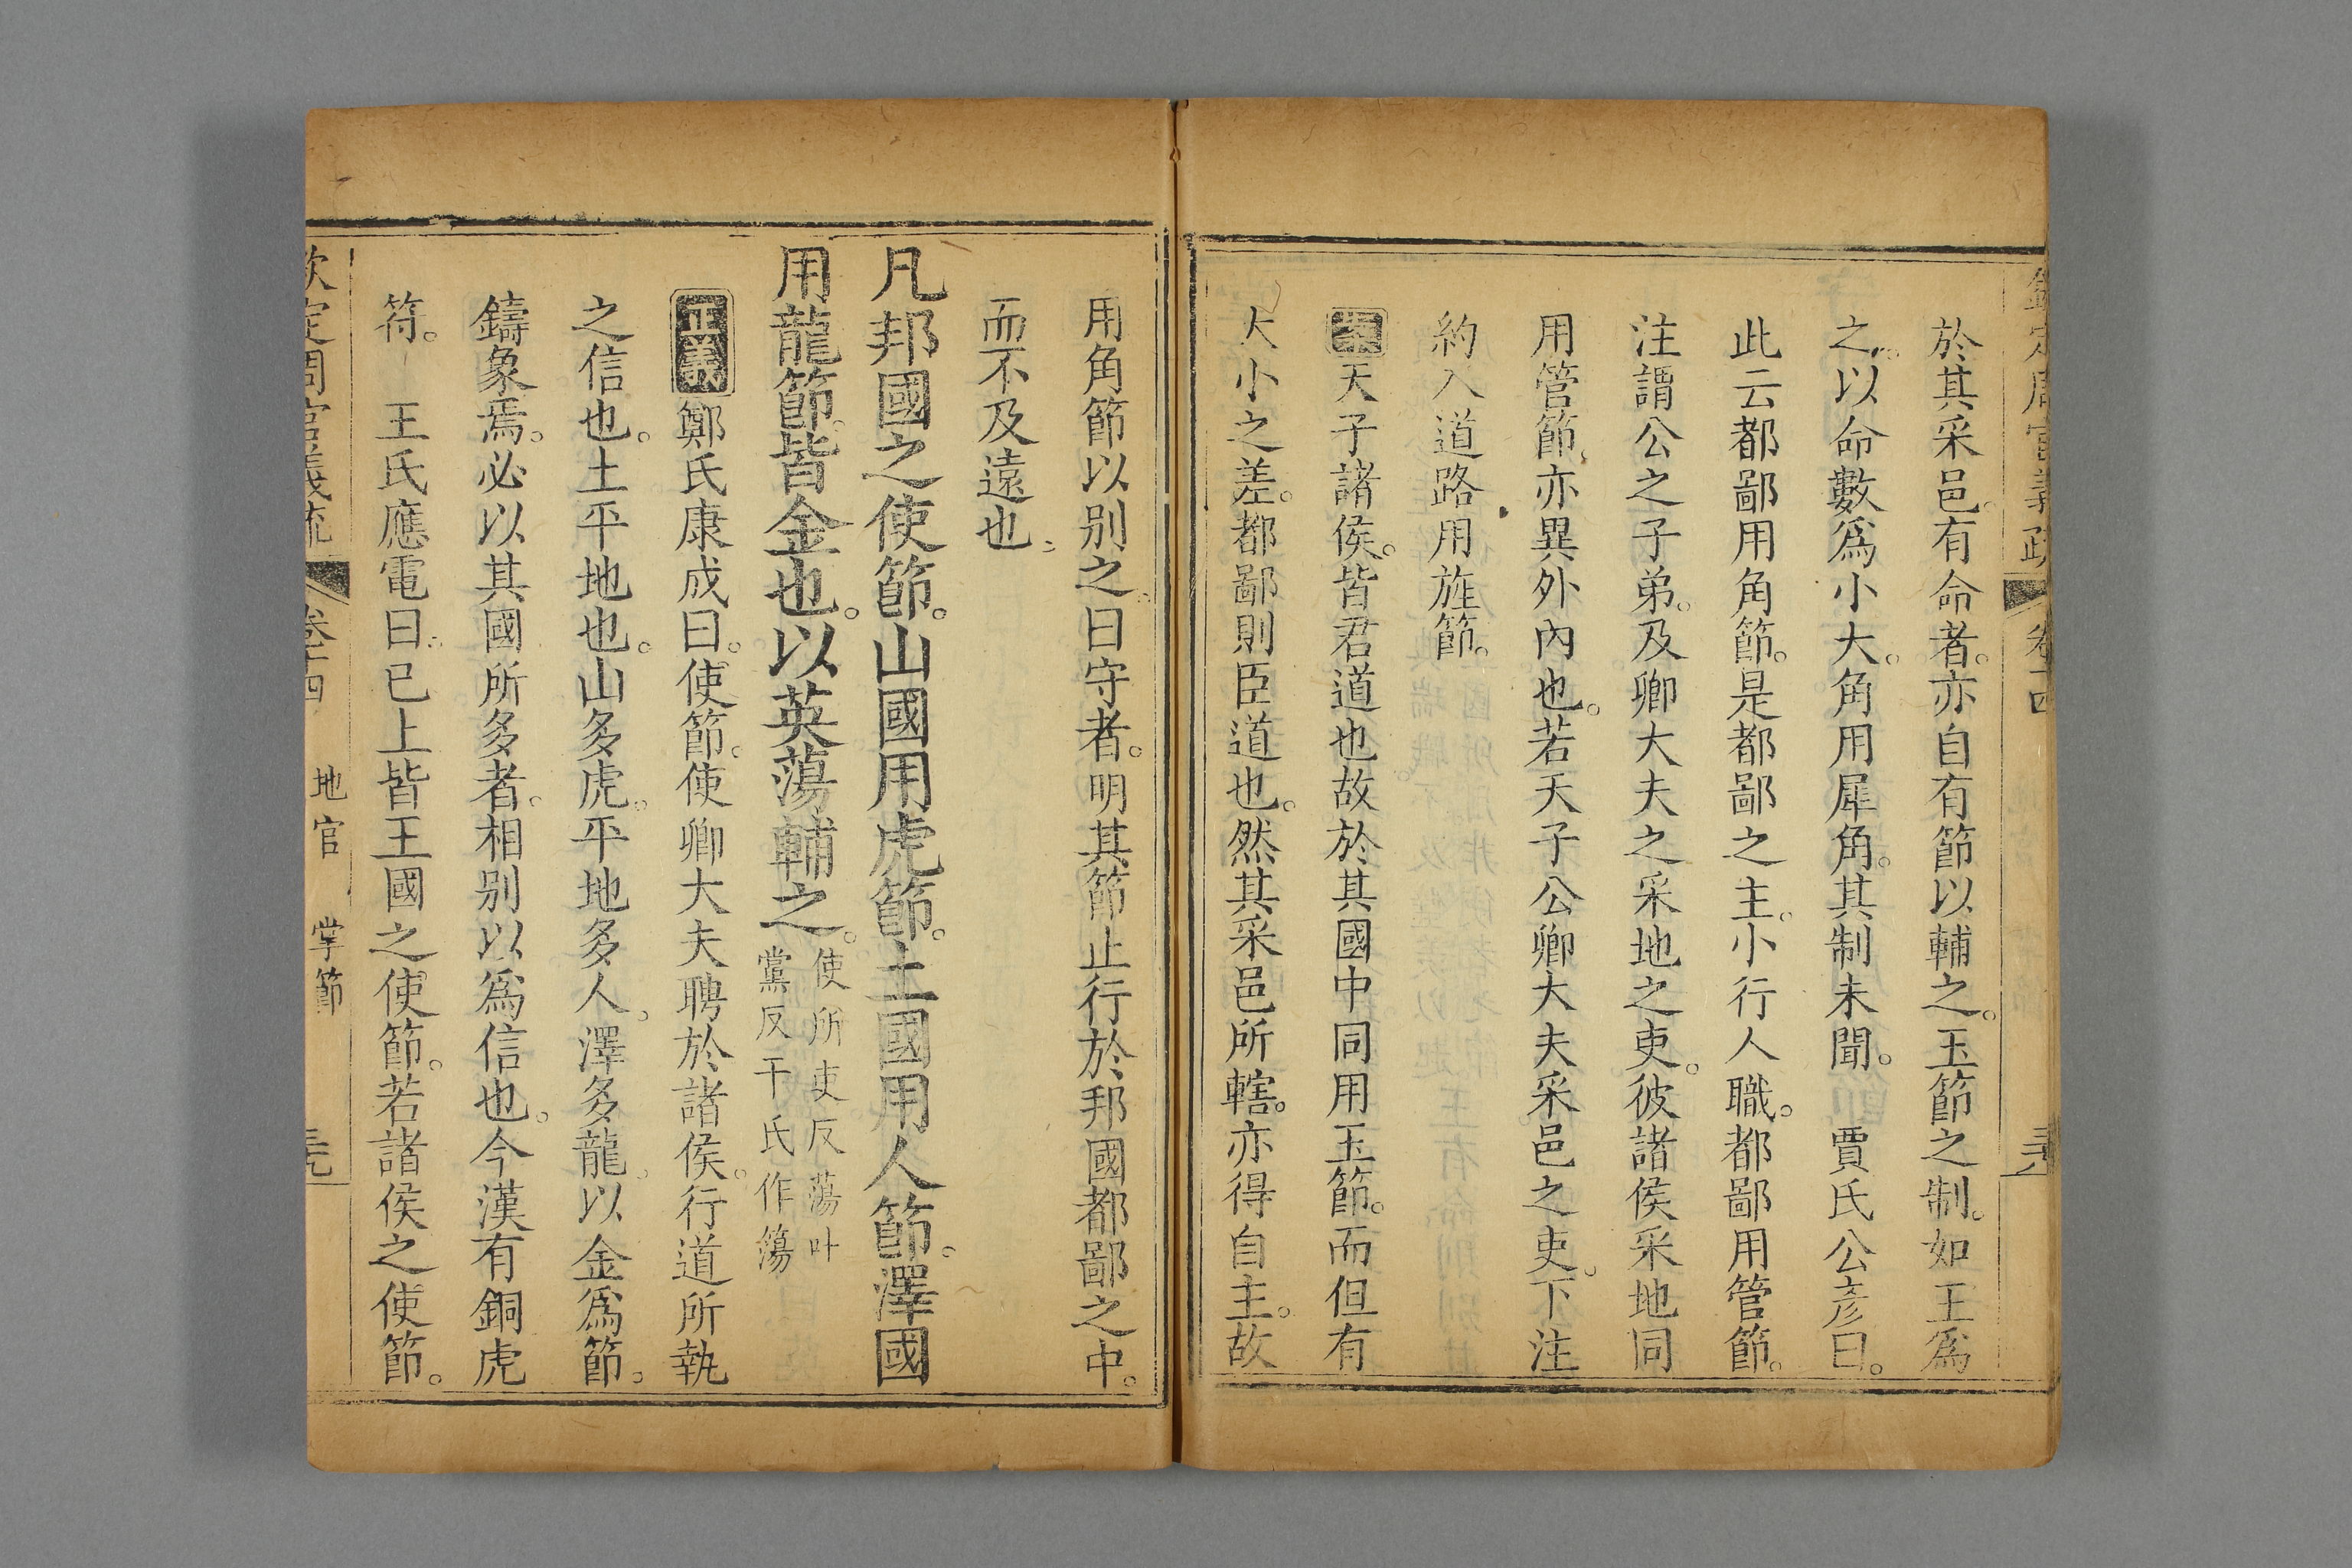 欽定周官義疏 卷十四
於其采邑。有命者。亦自有節以輔之。玉節之制。如王爲
之。以命數爲小大。角用犀角。其制未聞。 賈氏公彥曰。
此云都鄙用角節。是都鄙之主。小行人職。都鄙用管節。
注謂公之子弟。及卿大夫之采地之吏。彼諸侯采地同
用管節。亦異外內也。若天子公卿大夫采邑之吏。下注
約入道路用旌節。
案天子諸侯。皆君道也故於其國中同用玉節。而但有
大小之差。都鄙則臣道也。然其采邑所轄。亦得自主。故
用角節以别之。曰守者。明其節止行於邦國都鄙之中。
而不及遠也。
凡邦國之使節。山國用虎節。土國用人節。澤國
用龍節。皆金也。以英蕩輔之。使所吏反蕩叶
黨反干氏作簜
正義 鄭氏康成曰。使節。使卿大夫聘於諸侯。行道所執
之信也。土平地也。山多虎。平地多人。澤多龍。以金爲節。
鑄象焉。必以其國所多者。相别以爲信也。今漢有銅虎
符。 王氏應電曰。已上皆王國之使節。若諸侯之使節。
欽定周官義疏 卷十四 地官 掌節